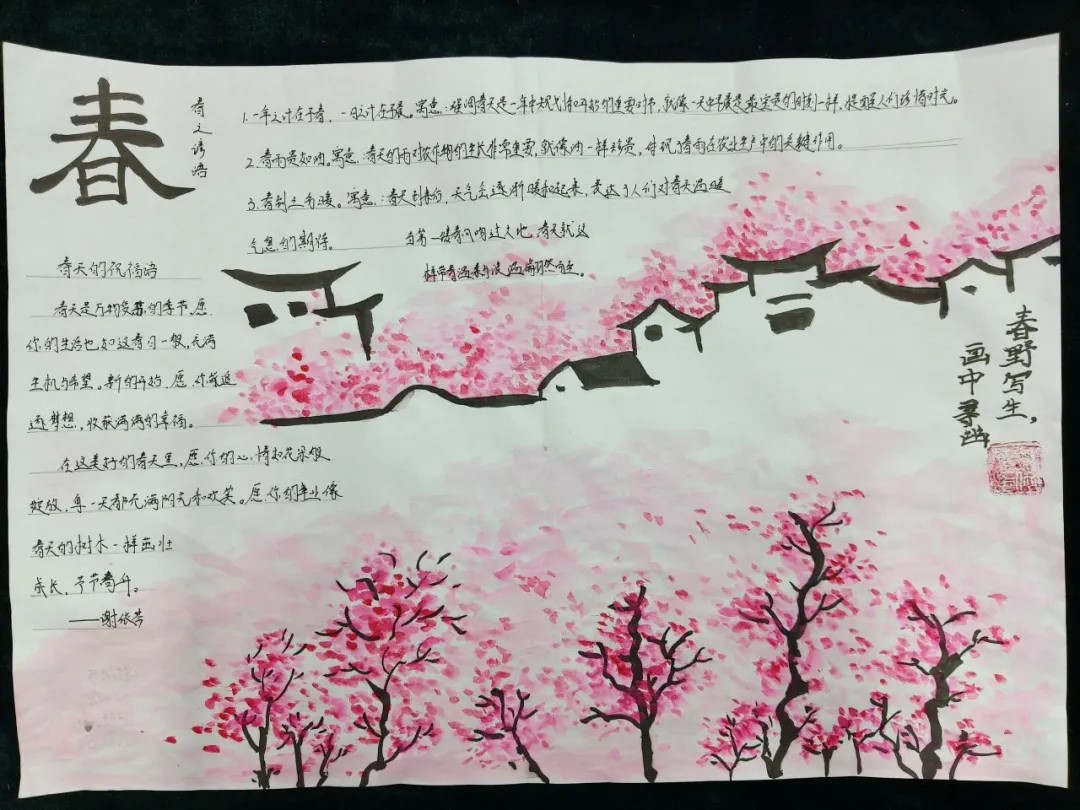 春
春之谚语
1.一年之计在于春，一日之计在于晨。寓意：强调春天是一年中规划和开始的重要时节，就像一天中早晨是最宝贵的时刻一样，提醒人们珍惜时光。
2.春雨贵如油。寓意：春天的雨对农作物的生长非常重要，就像油一样珍贵，体现了春雨在农业生产中的关键作用。
3.春到三分暖。寓意：春天到来后，天气会逐渐暖和起来，表达了人们对春天温暖
气息的期待。
当第一缕春风吻过大地，春天就这
样带着温柔与浪漫翩然而至。
春天的祝福语
春天是万物复苏的季节，愿
你的生活也如这春日一般，充满
生机与希望。新的开始，愿你能追
逐梦想，收获满满的幸福。
在这美好的春天里，愿你的心情如花朵般
绽放，每一天都充满阳光和欢笑。愿你的事业像
春天的树木一样茁壮
成长，节节高升。
春野写生，
画中寻幽